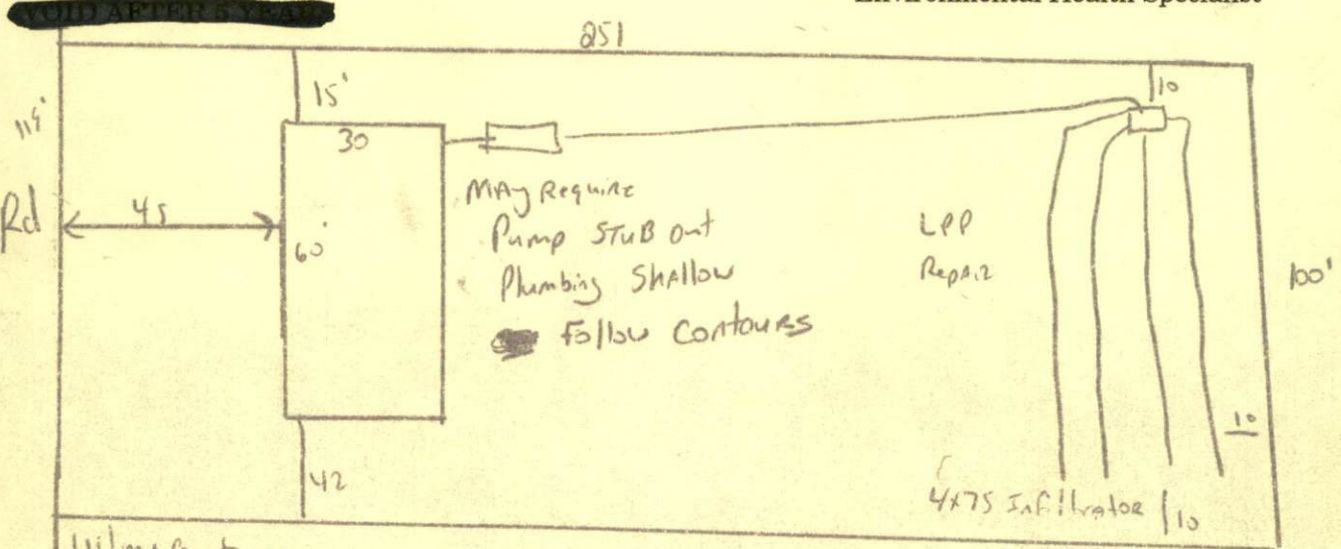 VOID AFTER 5 YEARS
Environmental Health Specialist
251
15'
10
30
Rd
45
60'
May Require
Pump STUB out
Plumbing Shallow
Follow Contours
LPP
Repair
100'
10
42
4x75 Infiltrator
10